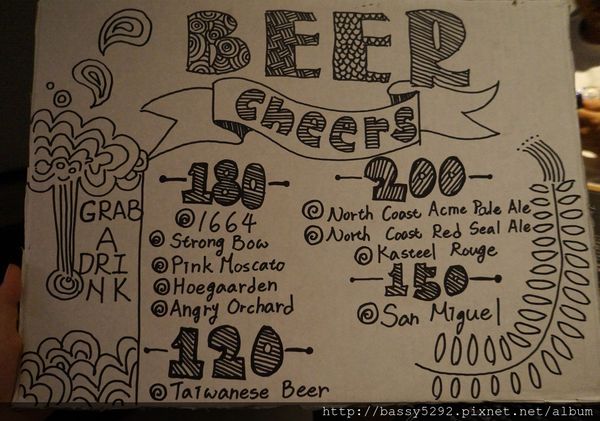 BEER
cheers
GRAB
A
DRI
NK
180
1664
Strong Bow
Pink Moscato
Hoegaarden
Angry Orchard
120
Taiwanese Beer
200
North Coast Acme Pale Ale
North Coast Red Seal Ale
Kasteel Rouge
150
San Miguel
http://bassy5292.pixnet.net/album